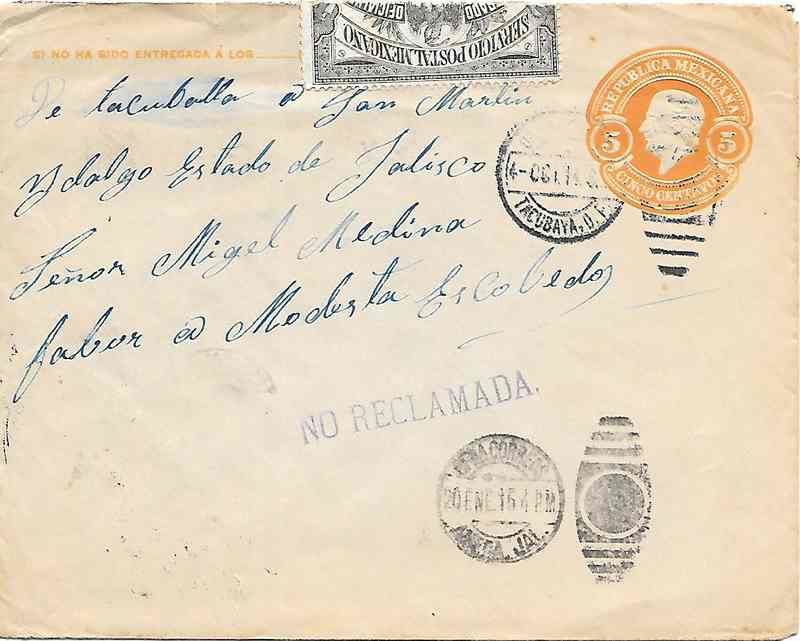 SI NO HA SIDO ENTREGADA Á LOS
SERVICIO POSTAL MEXICANO
REPUBLICA MEXICANA
5 5
CINCO CENTAVOS
De tacuballa a San Martin
Ydalgo Estado de Jalisco
Señor Migel Medina
fabor a Modesta Escobedo
4-OCT.
TACUBAYA, D.F.
NO RECLAMADA.
CORREOS
20 ENE. 15 4 PM
JAL.